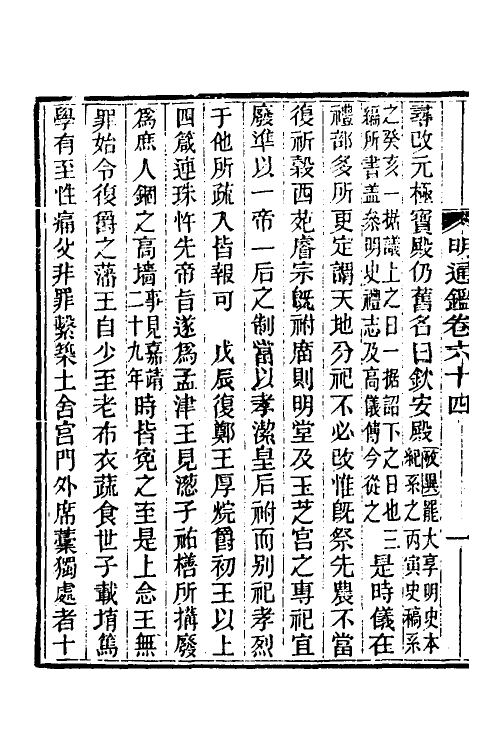 明通鑑卷六十四
一
尋改元極寶殿仍舊名曰欽安殿 攷異罷大享明史本紀系之丙寅史稿系
之癸亥一据議上之日一据詔下之日也三編所書蓋參明史禮志及高儀傳今從之 是時儀在
禮部多所更定謂天地分祀不必改惟既祭先農不當
復祈穀西苑睿宗既祔廟則明堂及玉芝宮之專祀宜
廢準以一帝一后之制當以孝潔皇后祔而别祀孝烈
于他所疏入皆報可 戊辰復鄭王厚烷爵初王以上
四箴連珠忤先帝旨遂爲孟津王見濍子祐橏所搆廢
爲庶人錮之高墻事見嘉靖二十九年時皆寃之至是上念王無
罪始令復爵之藩王自少至老布衣蔬食世子載堉篤
學有至性痛父非罪繫築土舍宮門外席藁獨處者十